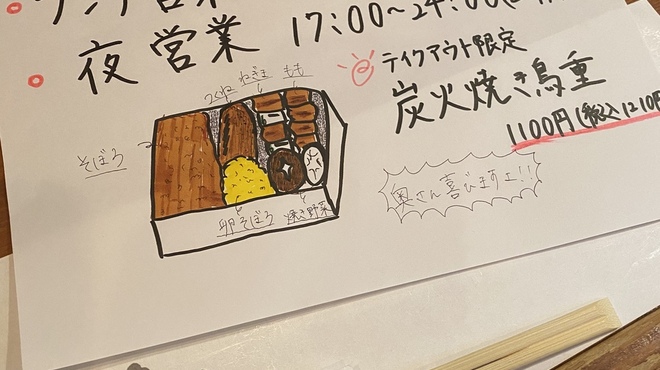 夜営業 17:00〜24:00
テイクアウト限定
炭火焼き鳥重
1100円(税込1210円
奥さん喜びますよ!!
つくね ねぎま もも
そぼろ
卵そぼろ 焼き野菜